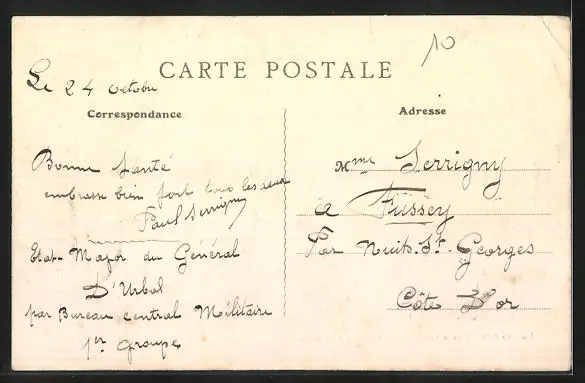 10
Le 24 octobre
CARTE POSTALE
Correspondance
Bonne Santé
embrasse bien fort tous les deux
Paul Serrigny
Etat-Major du Général
D'Urbal
par Bureau central Militaire
1er groupe
Adresse
Mme Serrigny
a Fussey
Par Nuits-St-Georges
Côte D'or